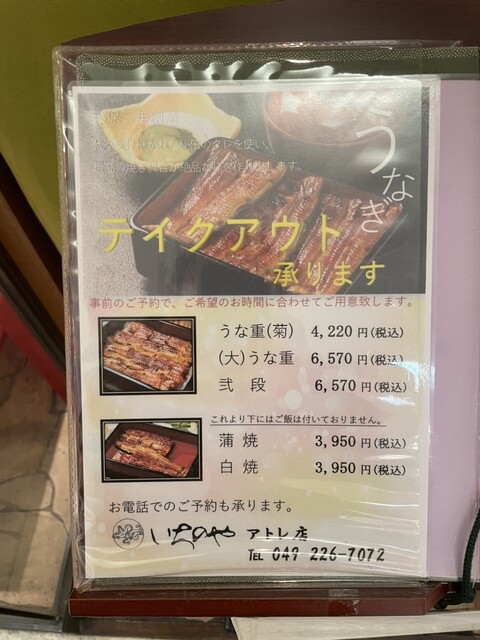 うなぎ
テイクアウト
承ります
事前のご予約で、ご希望のお時間に合わせてご用意致します。
うな重(菊) 4,220 円(税込)
(大)うな重 6,570 円(税込)
弐 段 6,570 円(税込)
これより下にはご飯は付いておりません。
蒲 焼 3,950 円(税込)
白 焼 3,950 円(税込)
お電話でのご予約も承ります。
いちのや アトレ店
TEL 049 226-7072